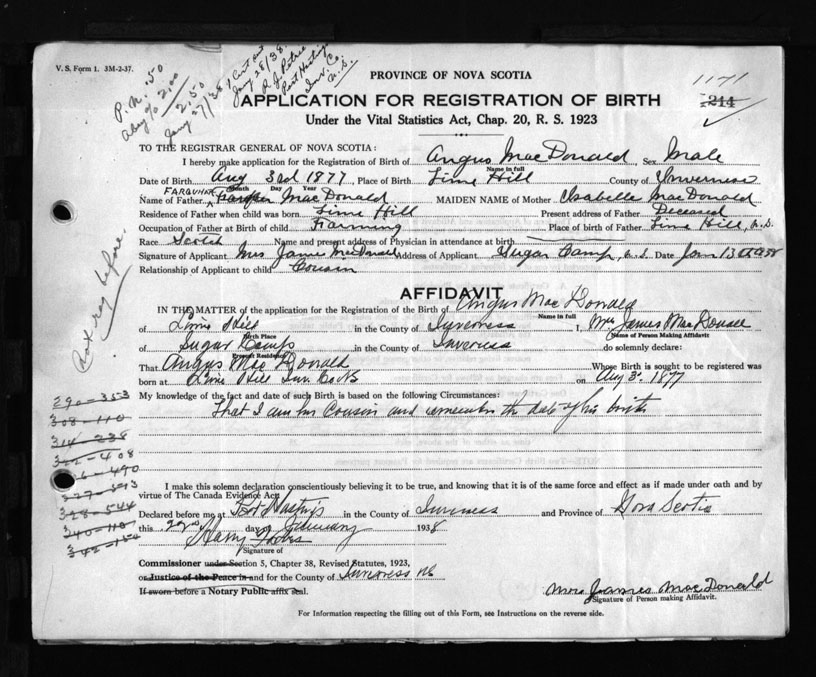 V. S. Form 1. 3M-2-37.
P. N. .50
2.00
2.50
Jany 27/38
Jany 28/38.
Port Hastings
Inv. Co.
N. S.
PROVINCE OF NOVA SCOTIA
1171
214
APPLICATION FOR REGISTRATION OF BIRTH
Under the Vital Statistics Act, Chap. 20, R. S. 1923
TO THE REGISTRAR GENERAL OF NOVA SCOTIA:
I hereby make application for the Registration of Birth of Angus MacDonald, Sex Male
Name in full
Date of Birth Aug 3rd 1877, Place of Birth Lime Hill County of Inverness
Month Day Year
FARQUHAR
Name of Father, MacDonald MAIDEN NAME of Mother Isabelle MacDonald
Residence of Father when child was born Lime Hill Present address of Father Deceased
Occupation of Father at Birth of child Farming Place of birth of Father Lime Hill, N.S.
Race Scotch Name and present address of Physician in attendance at birth
Signature of Applicant Mrs James MacDonald Address of Applicant Sugar Camp, N.S. Date Jan 13th 1938
Relationship of Applicant to child Cousin
before.
AFFIDAVIT
IN THE MATTER of the application for the Registration of the Birth of Angus MacDonald
Name in full
of Lime Hill in the County of Inverness I, Mrs James MacDonald
Birth Place Name of Person making Affidavit
of Sugar Camp in the County of Inverness do solemnly declare:
Present Residence
That Angus MacDonald Whose Birth is sought to be registered was
born at Lime Hill Inv Co NS on Aug 3. 1877
My knowledge of the fact and date of such Birth is based on the following Circumstances:
That I am his Cousin and remember the date of his birth
290-353
308-110
314-238
322-408
327-593
328-544
340-110
I make this solemn declaration conscientiously believing it to be true, and knowing that it is of the same force and effect as if made under oath and by
virtue of The Canada Evidence Act.
Declared before me at Port Hastings in the County of Inverness and Province of Nova Scotia
this day of January 1938
Harry
Signature of
Commissioner under Section 5, Chapter 38, Revised Statutes, 1923,
or Justice of the Peace in and for the County of Inverness NS
If sworn before a Notary Public affix seal.
Mrs James MacDonald
Signature of Person making Affidavit.
For Information respecting the filling out of this Form, see Instructions on the reverse side.